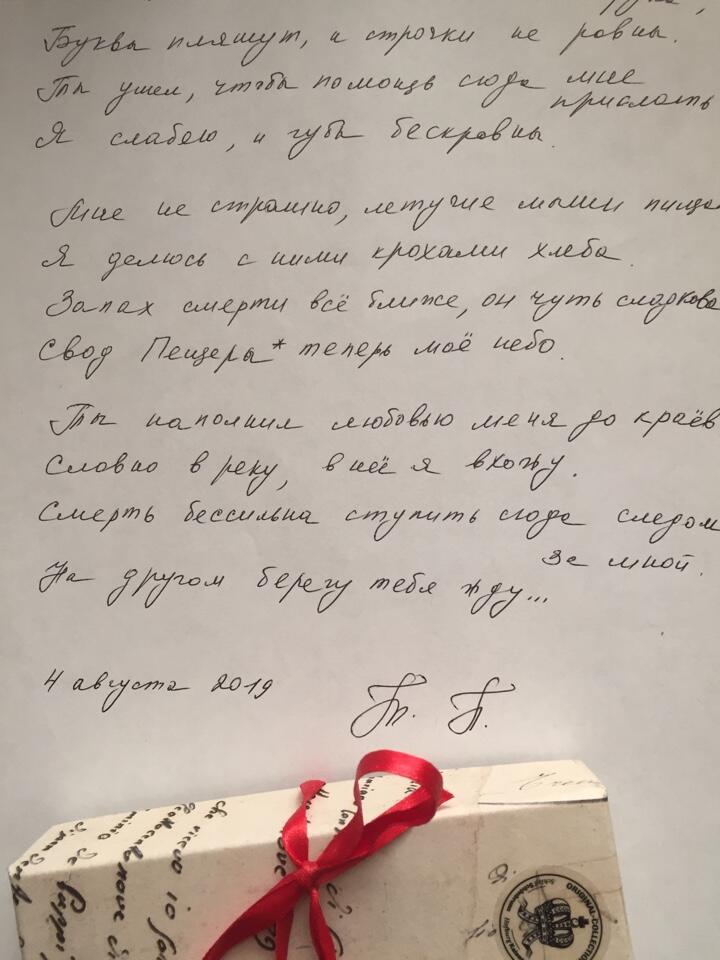 Буквы пляшут, и строчки не ровны.
Ты ушел, чтобы помощь сюда мне
прислать
Я слабею, и губы бескровны.
Мне не страшно, летучие мыши пища
Я делюсь с ними крохами хлеба.
Запах смерти всё ближе, он чуть сладкова
Свод Пещеры* теперь моё небо.
Ты наполнил любовью меня до краёв
Словно в реку, в неё я вхожу.
Смерть бессильна ступить сюда следом
за мной.
На другом берегу тебя жду...
4 августа 2019
Т. П.
che ricevo io
ORIGINAL-COLLECTION